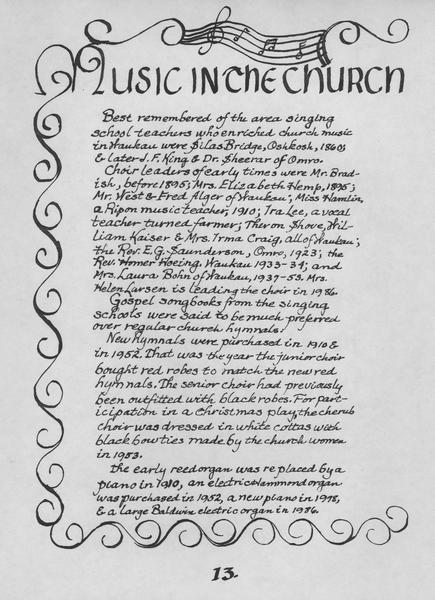 MUSIC IN THE CHURCH
Best remembered of the area singing
school teachers who enriched church music
in Waukau were Silas Bridge, Oshkosh, 1860s
& later J. F. King & Dr. Sheerar of Omro.
Choir leaders of early times were Mr. Brad-
ish, before 1895; Mrs. Elizabeth Hemp, 1895;
Mr. West & Fred Alger of Waukau; Miss Hamlin,
a Ripon music teacher, 1910; Ira Lee, a vocal
teacher turned farmer; Theron Shove, Wil-
liam Kaiser & Mrs. Irma Craig, all of Waukau;
the Rev. E.G. Saunderson, Omro, 1923; the
Rev. Homer Roeing, Waukau 1933-34; and
Mrs. Laura Bohn of Waukau, 1937-55. Mrs.
Helen Larsen is leading the choir in 1986.
Gospel songbooks from the singing
schools were said to be much preferred
over regular church hymnals.
New hymnals were purchased in 1910 &
in 1952. That was the year the junior choir
bought red robes to match the new red
hymnals. The senior choir had previously
been outfitted with black robes. For part-
icipation in a Christmas play, the cherub
choir was dressed in white cottas with
black bow ties made by the church women
in 1953.
The early reed organ was replaced by a
piano in 1910, an electric Hammond organ
was purchased in 1952, a new piano in 1978,
& a large Baldwin electric organ in 1986.
13.